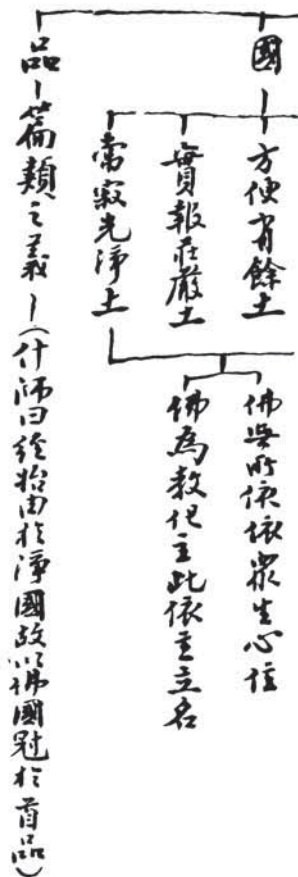 國
方便有餘土
實報莊嚴土
常寂光淨土
佛無所依依眾生心住
佛為教化主此依主立名
品－篇類之義－(什師曰經始由於淨國故以佛國冠於首品)